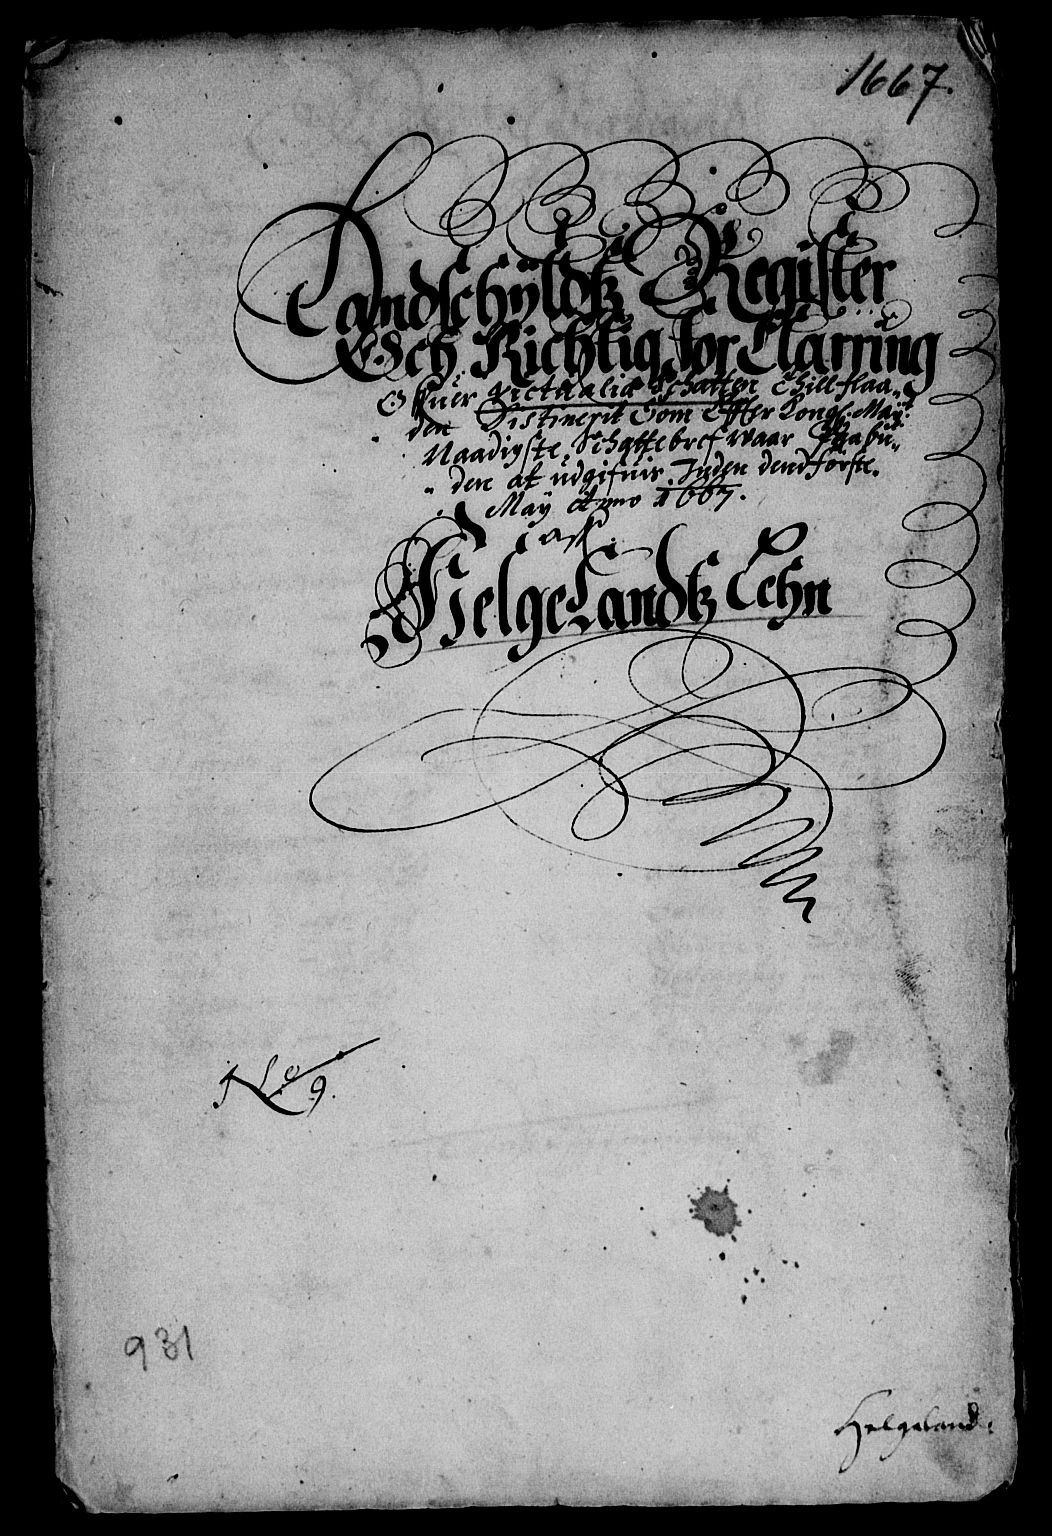 1667.
Landschÿldtz Register
Och Richtig for Clarring
Offuer Victualie Schatten Thillslaa„
den Distinerit Som Effter Kongl: Maÿ:
Naadigste Schattebref waar Paabu„
den at udgifuis Inden dend förste.
Maÿ Anno 1667.
aff
Helgelandtz Lehn
No 9.
931
Helgeland: